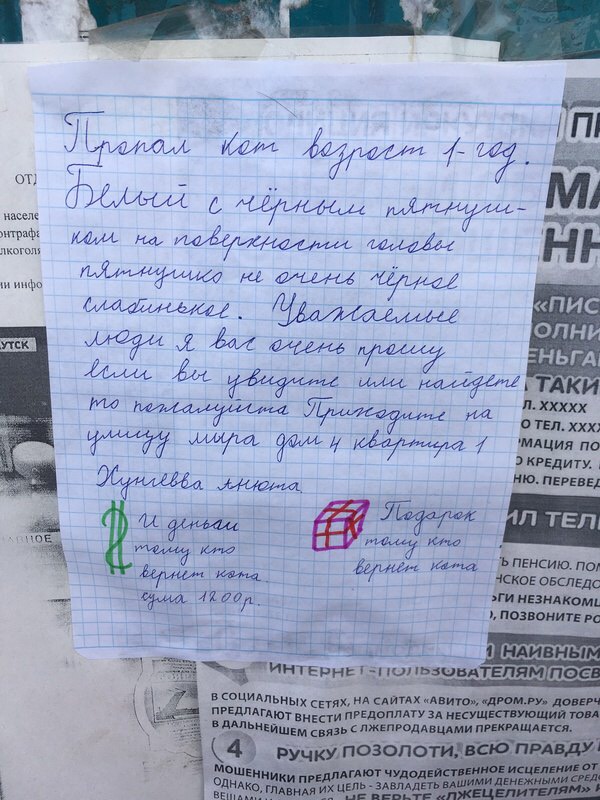 Пропал кот возрост 1-год.
Белый с чёрным пятнуш-
ком на поверхности головы
пятнушко не очень чёрное
слабинькое. Уважаемые
люди я вас очень прошу
если вы увидите или найдете
то пожалуйста Приходите на
улицу мыра дом 4 квартира 1
Хунгевва Анюта
И деньги
тому кто
вернет кота
сума 1200р.
Подарок
тому кто
вернет кота
ОТД
населе
контрафа
алкоголя
ии инфо
УТСК
АВНОЕ
П
МА
НН
«ПИС
ОЛНИ
ЕНЬГА
ТАКИ
Л. XXXXX
О ТЕЛ. XXXX
РМАЦИЯ ПО
О КРЕДИТУ.
НЮ. ПЕРЕВЕД
ИЛ ТЕЛ
ТЬ ПЕНСИЮ. ПОМ
НСКОЕ ОБСЛЕДО
ЬГИ НЕЗНАКОМЦ
О, ПОЗВОНИТЕ РО
И НАИВНЫМ
ИНТЕРНЕТ-ПОЛЬЗОВАТЕЛЯМ ПОСВ
В СОЦИАЛЬНЫХ СЕТЯХ, НА САЙТАХ «АВИТО», «ДРОМ.РУ» ДОВЕРЧ
ПРЕДЛАГАЮТ ВНЕСТИ ПРЕДОПЛАТУ ЗА НЕСУЩЕСТВУЮЩИЙ ТОВА
В ДАЛЬНЕЙШЕМ СВЯЗЬ С ЛЖЕПРОДАВЦАМИ ПРЕКРАЩАЕТСЯ.
4 РУЧКУ ПОЗОЛОТИ, ВСЮ ПРАВДУ
МОШЕННИКИ ПРЕДЛАГАЮТ ЧУДОДЕЙСТВЕННОЕ ИСЦЕЛЕНИЕ ОТ
ОДНАКО, ГЛАВНАЯ ИХ ЦЕЛЬ - ЗАВЛАДЕТЬ ВАШИМИ ДЕНЕЖНЫМИ СРЕДС
НЕ ВЕРЬТЕ «ЛЖЕЦЕЛИТЕЛЯМ»